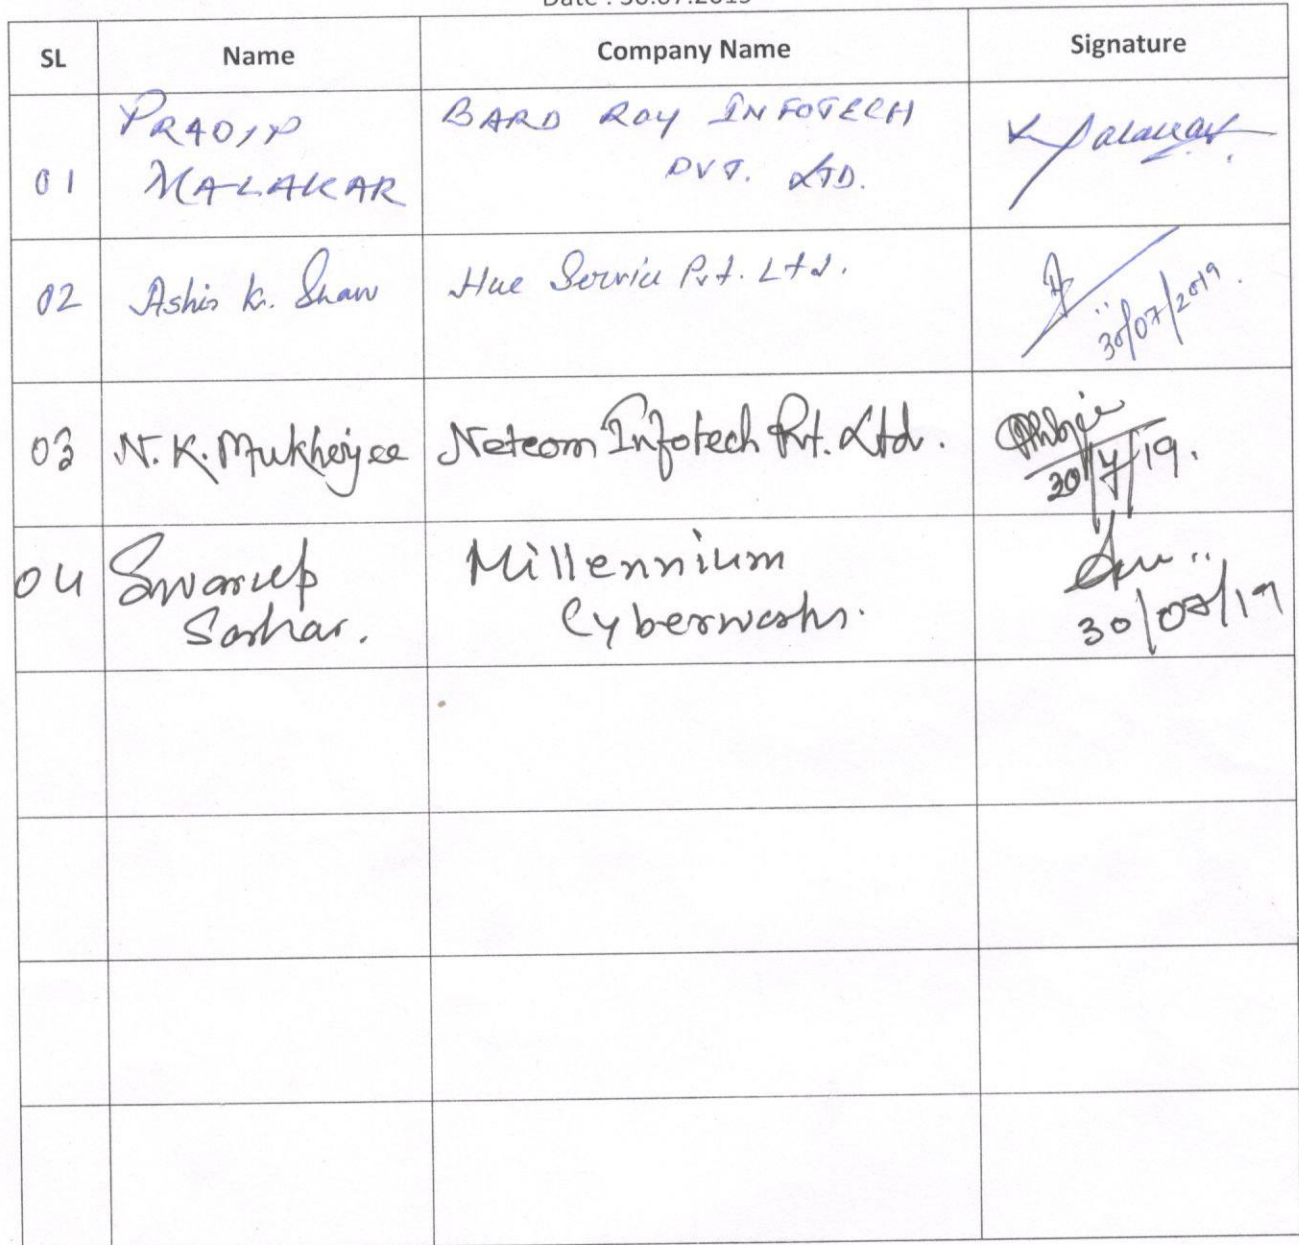 Date : 30.07.2019
SL Name Company Name Signature
PRADIP BARD ROY INFOTECH
01 MALAKAR PVT. LTD.
02 Ashis K. Shaw Hue Service Pvt. Ltd.
30/07/2019.
03 N. K. Mukherjee Netcom Infotech Pvt. Ltd.
30/7/19.
04 Swarup Millennium
Sarkar. Cyberworks.
30/07/19